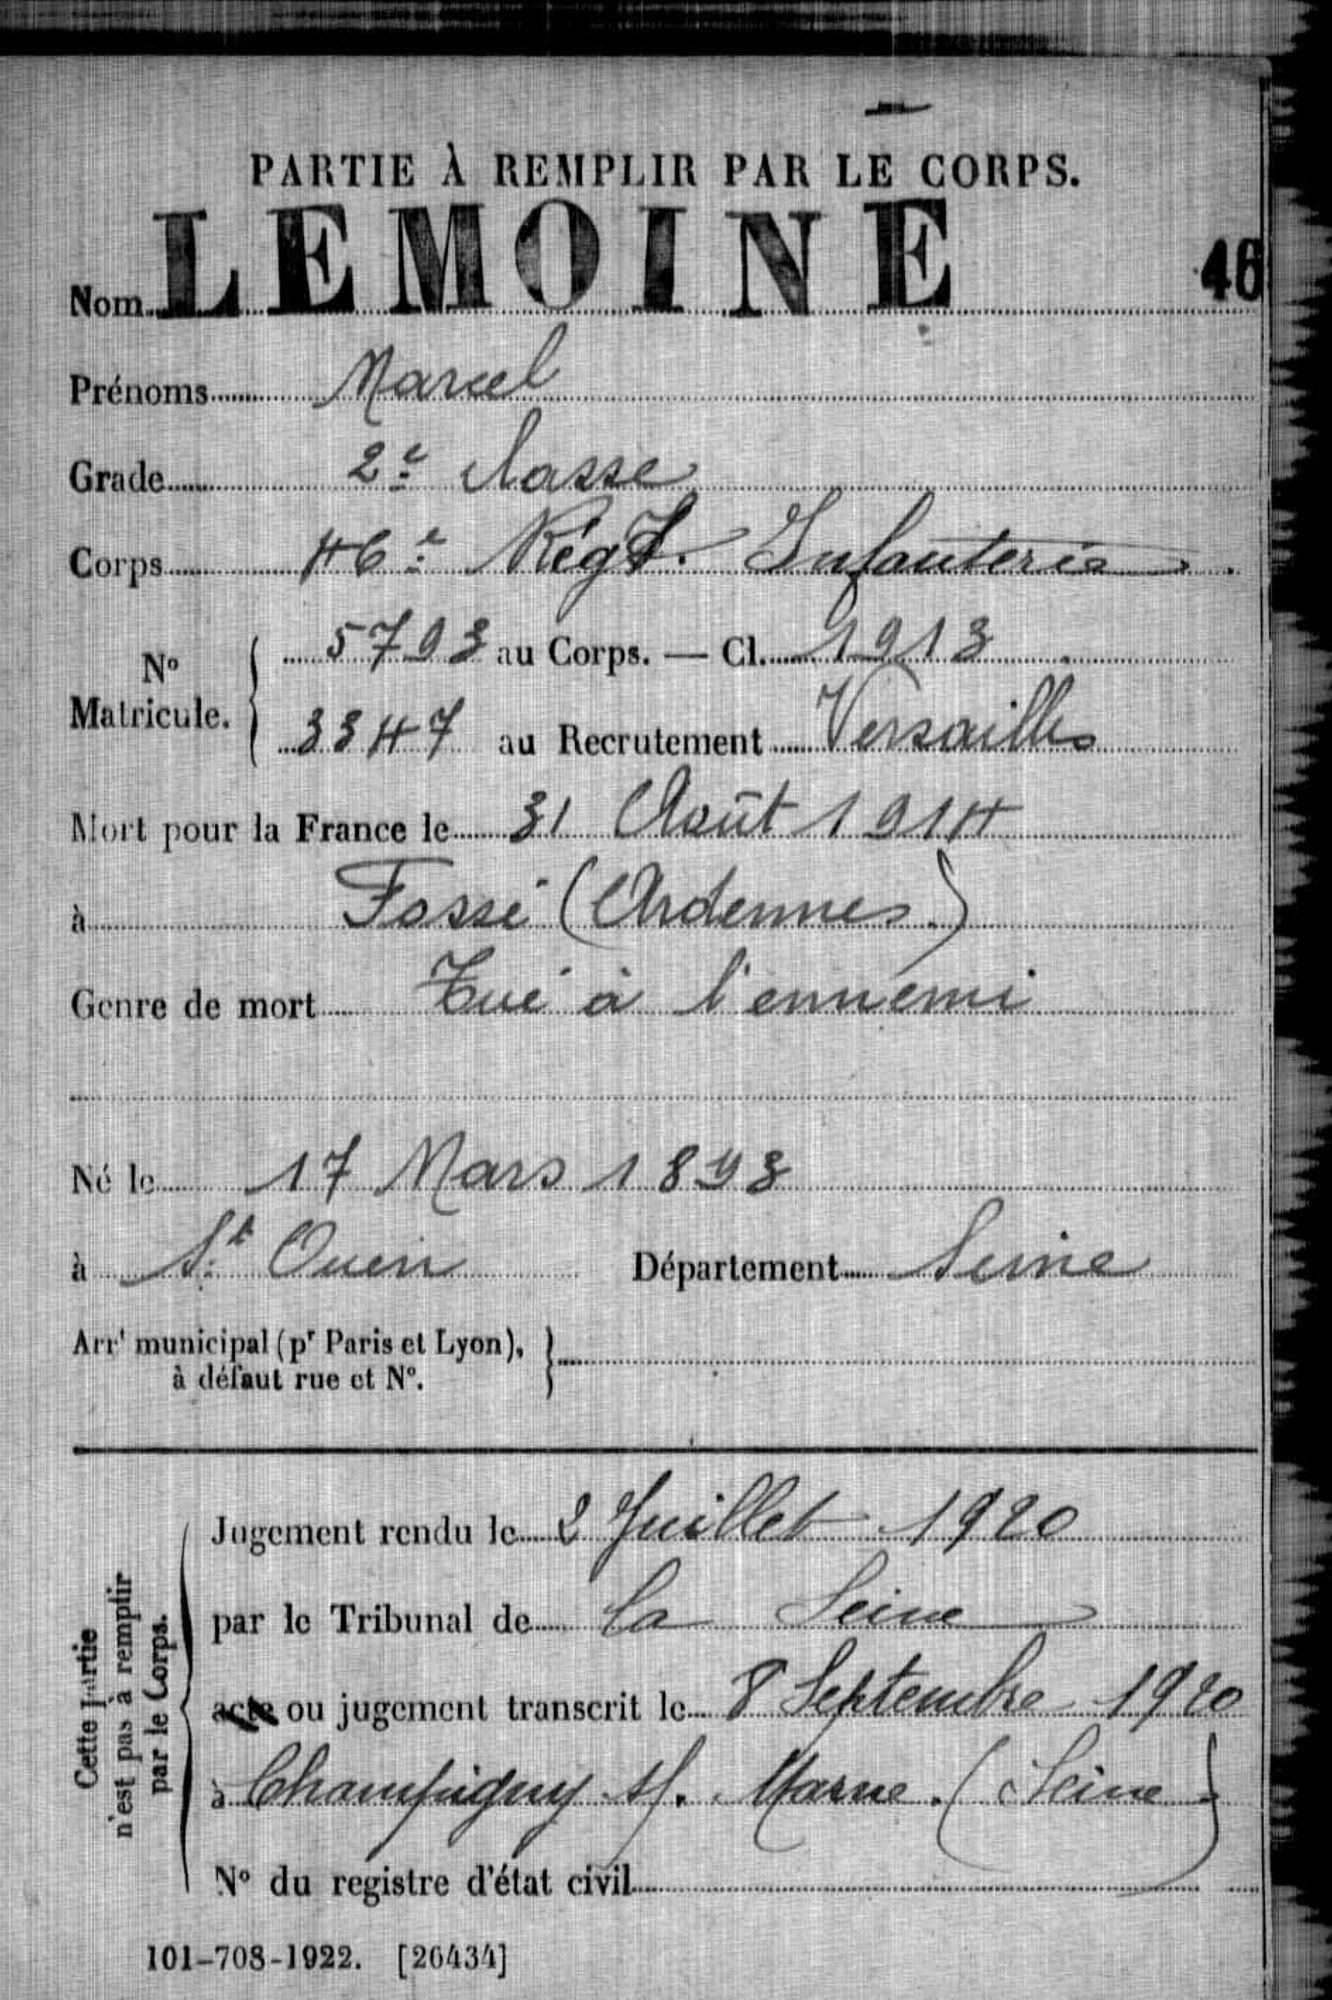 PARTIE À REMPLIR PAR LE CORPS.
Nom LEMOINE 46
Prénoms Marcel
Grade 2e classe
Corps 46e Régt. Infanterie.
N° Matricule. { 5793 au Corps. — Cl. 1913
3347 au Recrutement Versailles
Mort pour la France le 31 Août 1914
à Fossé (Ardennes)
Genre de mort Tué à l'ennemi
Né le 17 Mars 1893
à St Ouen Département Seine
Arrt municipal (pr Paris et Lyon), }
à défaut rue et N°.
Cette partie
n'est pas à remplir
par le Corps.
Jugement rendu le 2 Juillet 1920
par le Tribunal de la Seine
acte ou jugement transcrit le 8 Septembre 1920
à Champigny s/. Marne. (Seine)
N° du registre d'état civil
101-708-1922. [26434]